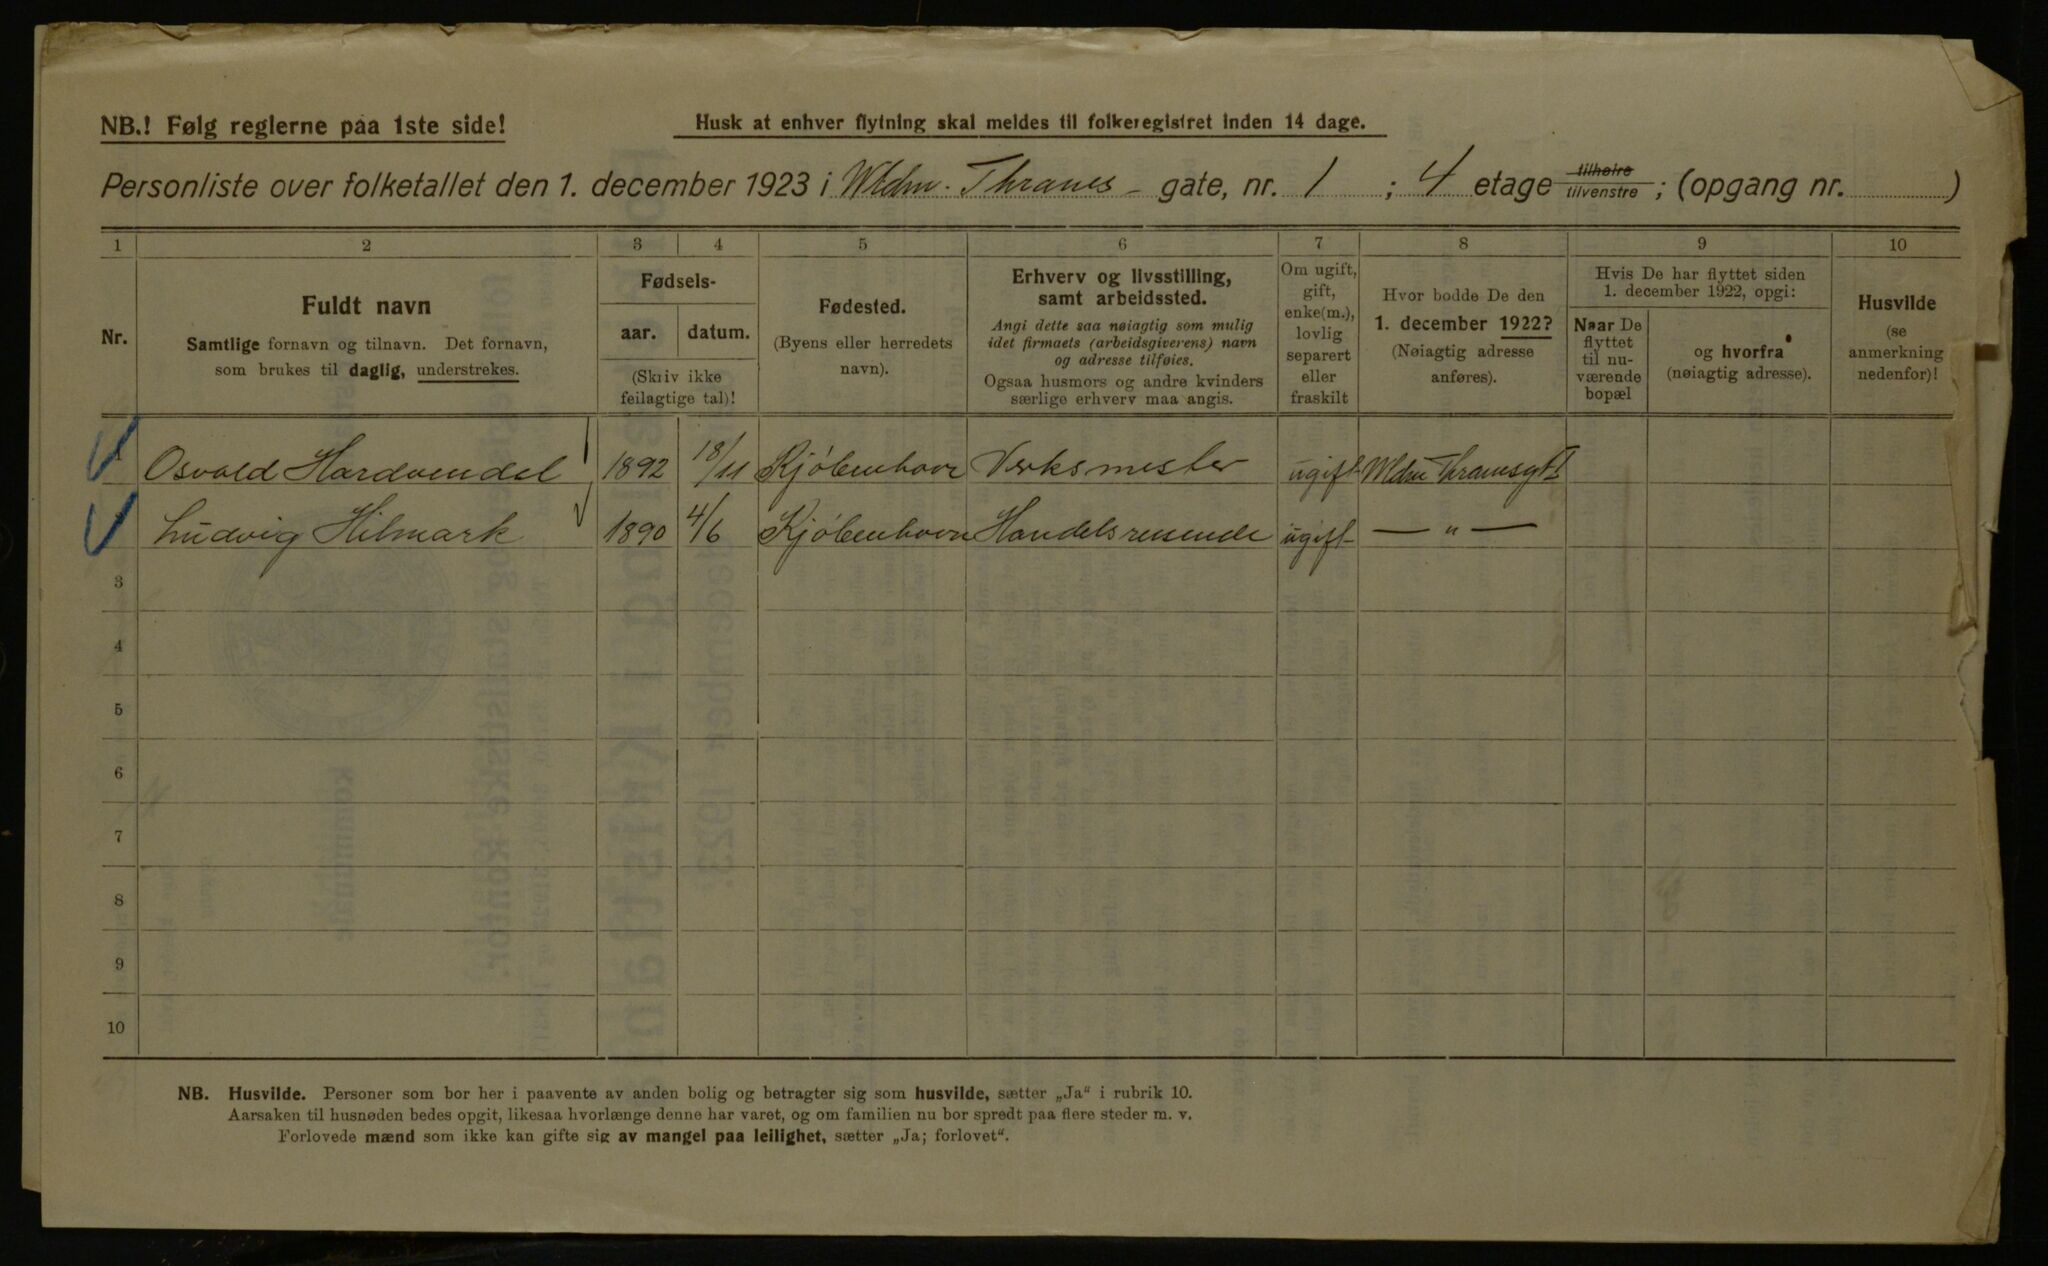 NB.! Følg reglerne paa 1ste side!
Husk at enhver flytning skal meldes til folkeregistret inden 14 dage.
Personliste over folketallet den 1. december 1923 i Wldm. Thranes - gate, nr. 1 ; 4 etage tilhøire tilvenstre ; (opgang nr. )
1 2 3 4 5 6 7 8 9 10
Nr.
Fuldt navn
Samtlige fornavn og tilnavn. Det fornavn,
som brukes til daglig, understrekes.
Fødsels-
aar. datum.
(Skriv ikke
feilagtige tal)!
Fødested.
(Byens eller herredets
navn).
Erhverv og livsstilling,
samt arbeidssted.
Angi dette saa nøiagtig som mulig
idet firmaets (arbeidsgiverens) navn
og adresse tilføies.
Ogsaa husmors og andre kvinders
særlige erhverv maa angis.
Om ugift,
gift,
enke(m.),
lovlig
separert
eller
fraskilt
Hvor bodde De den
1. december 1922?
(Nøiagtig adresse
anføres).
Hvis De har flyttet siden
1. december 1922, opgi:
Naar De
flyttet
til nu-
værende
bopæl
og hvorfra
(nøiagtig adresse).
Husvilde
(se
anmerkning
nedenfor)!
Osvald Hardvendel 1892 18/11 Kjöbenhavn Verksmester ugift Wldm Thranesgt 1
Ludvig Hilmark 1890 4/6 Kjöbenhavn Handelsreisende ugift — " —
3
4
5
6
7
8
9
10
NB. Husvilde. Personer som bor her i paavente av anden bolig og betragter sig som husvilde, sætter „Ja“ i rubrik 10.
Aarsaken til husnøden bedes opgit, likesaa hvorlænge denne har varet, og om familien nu bor spredt paa flere steder m. v.
Forlovede mænd som ikke kan gifte sig av mangel paa leilighet, sætter „Ja; forlovet“.